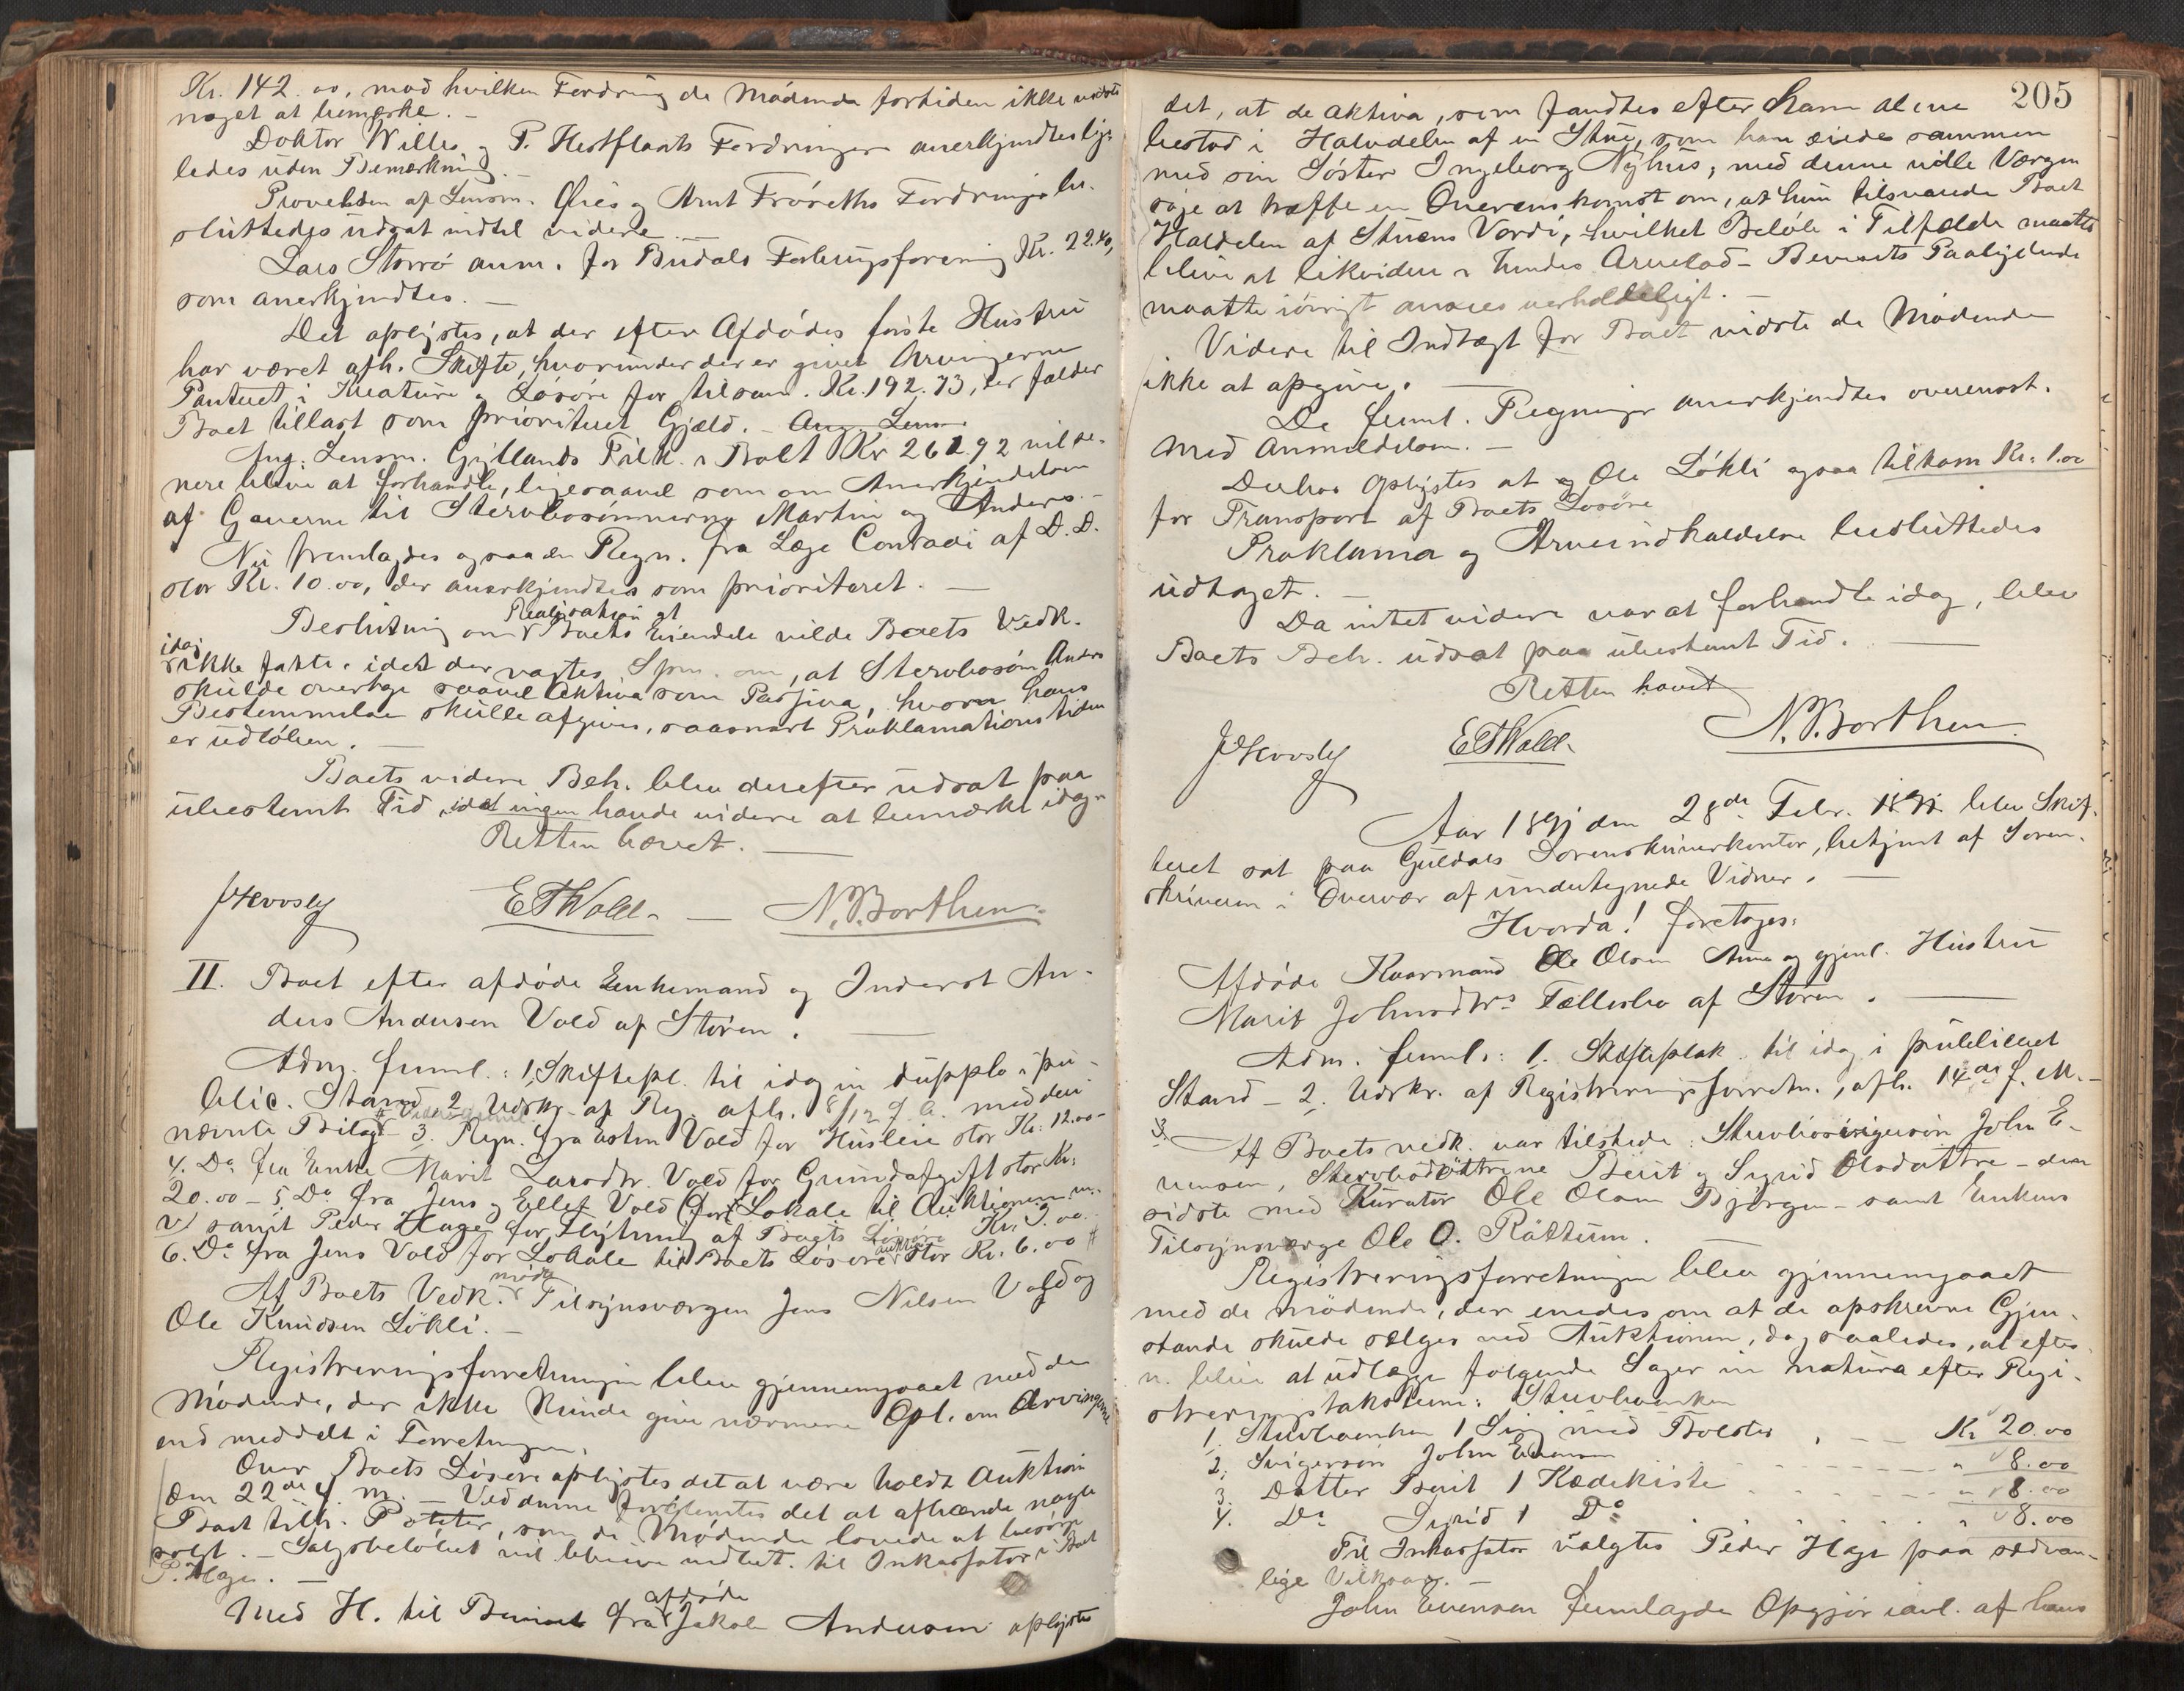 Kr. 142.00, mod hvilken Fordring de Mødende fortiden ikke vidste
noget at bemærke. –
Doktor Willes og P. Hestflaats Fordringer anerkjendtes lige-
ledes uden Bemærkning. –
Provelsen af Lensm. og Arnt Frøseths Fordringer be-
sluttedes udsat indtil videre. –
Lars Storrø anm. for Budals Forbrugsforening Kr. 22.40,
som anerkjendtes. –
Det oplystes, at der efter Afdødes første Hustru
har været afh. Skifte, hvorunder der er givet Arvingerne
Panteret i Kreature og Løsøre for tilsam. Kr. 192.73, der falder
Boet tillast som prioriteret Gjæld. – Ang. Lensm
Ang. Lensm. Gyllands Tilk. i Boet Kr 261.92 vil se-
nere blive at forhandle, ligesaavel som om Anerkjendelsen
af Gaverne til Stervbosønnerne Martin og Anders. –
Nu fremlagdes ogsaa en Regn. fra Læge Conradi af D.D.
stor Kr. 10.00, der anerkjendtes som prioriteret. –
Beslutning om Realisation af Boets Eiendele vilde Boets Vedk.
idag ikke fatte, idet der vagtes Spm. om, at Stervbosøn Anders
skulde overtage saavel Aktiva som Passiva, hvorom hans
Bestemmelse skulle afgives, saasnart Proklamationstiden
er udløben. –
Boets videre Beh. blev derefter udsat paa
ubestemt Tid, idet ingen havde videre at bemærke idag. –
Retten hævet. –
E T Wold. – N. B. Borthen.
II. Boet efter afdøde Enkemand og Inderst An-
ders Andersen Vold af Støren. –
Adm. freml.: 1, Skiftepl. til idag in dupplo i pu-
blic. Stand 2, Udskr. af Reg. afh. 8/12 f. A. med deri
nævnte Bilag – 3. Regn. fra Esten Vold for Husleie stor Kr. 12.00 –
4. Do. fra Enke Marit Larsdtr. Vold for Grundafgift stor Kr.
20.00 – 5, Do. fra Jens og Ellef Vold for Lokale til Auktionen m.
v samt Peder Hage for Flytning af Boets Løsøre Kr. 9.00.
6. Do. fra Jens Vold for Lokale til Boets Løsøreauktion stor Kr. 6.00 #
Af Boets Vedk. mødte Tilsynsværgen Jens Nilsen Vold og
Ole Knudsen Løkli. –
Registreringsforretningen blev gjennemgaaet med de
Mødende, der ikke kunde give nærmere Opl. om Arvingerne
end meddelt i Forretningen.
Over Boets Løsøre oplystes det at være holdt Auktion
den 22de d. M. – Ved denne forglemtes det at afhænde nogle
Boet tilh. Poteter, som de Mødende lovede at besørge
solgt. – Salgsbeløbet vil blive indbet. til Inkassator i Boet
P. Hage. –
Med H. til Beviset fra afdøde Jakob Andersen oplystes
205
det, at de Aktiva, som fandtes efter ham alene
bestod i Halvdelen af en Stue, som han eiede sammen
med sin Søster Ingeborg Nyhus; med denne vilde Værgen
søge at træffe en Overenskomst om, at hun tilsvarede Boet
Haldelen af Stuens Værdi, hvilket Beløb i Tilfælde maatte
blive at likvidere i hendes Arvelod – Bevisets Paalydende
maatte iøvrigt ansees uerholdeligt. –
Videre til Indtægt for Boet vidste de Mødende
ikke at opgive. –
De freml. Regninger anerkjendtes overensst.
med Anmeldelsen. –
Derhos oplystes at og Ole Løkli ogsaa tilkom Kr. 1.00
for Transport af Boets Løsøre
Proklama og Arveindkaldelse besluttedes
udtaget. –
Da intet videre var at forhandle idag, blev
Boets Beh. udsat paa ubestemt Tid. –
Retten hævet
E T Wold. N. B. Borthen.
Aar 1891 den 28de Febr. 1891 blev Skif-
teret sat paa Guldals Sorenskriverkontor, betjent af Soren-
skriveren i Overvær af undertegnede Vidner. –
Hvorda! foretoges:
Afdøde Kaarmand Ole Olsen Aunes og gjenl. Hustru
Marit Johnsdtrs Fællesbo af Støren. –
Adm. freml.: 1. Skifteplak. til idag i publiceret
Stand – 2. Udskr. af Registreringsforretn., afh. 14de f. M. –
3.
Af Boets vedk. var tilstede: Stervbosvigersøn John E-
vensen, Stervbodøttrene Berit og Sigrid Olsdøttre – den
sidste med Kurator Ole Olsen Bjørgen – samt Enkens
Tilsynsværge Ole O. Røttum.
Registreringsforretningen blev gjennemgaaet
med de mødende, der enedes om at de opskrevne Gjen-
stande skulde sælges ved Auktionen, dog saaledes, at efter
n. blive at udlægge følgende Sager in natura efter Regi-
streringstaksten: Stervboenken
1. Stervboenken 1 Seng med Bolster . – – Kr 20.00
2. Svigersøn John Evensen – – – – – " 8.00
3. Datter Berit 1 Klædekiste – – – – " 8.00
4. Do Sigrid 1 Do " 8.00
Til Inkassator valgtes Peder Hage paa sædvan-
lige Vilkaar. –
John Evensen fremlagde Opgjør iavl. af hans